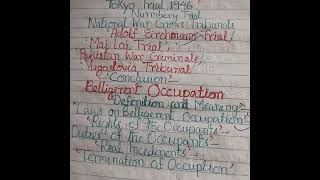 Tokyo Trial 1946
Nuremberg Trial
National War Crimes Tribunals
'Adolf Eirchmann Trial,
Mai Lai Trial,
Pakistan War Criminals
Yugoslovia Tribunal
'Conclusion'
Belligerent Occupation
'Defenation and Meaning:-
'Laws on Belligerent Occupation'
'Rights of the Occupants'-
Duties of the Occupants'-
'Real Incedients'
'Termination of Occuption'